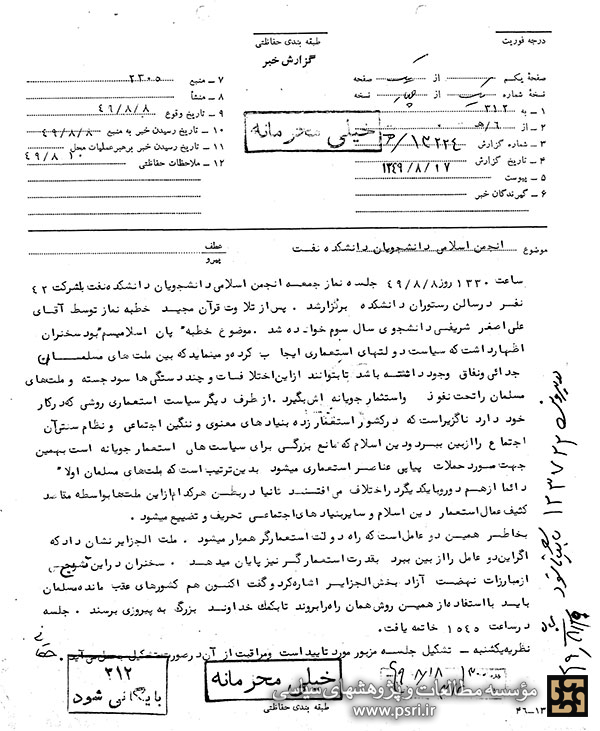 درجه فوریت
طبقه بندی حفاظتی
گزارش خبر
صفحهٔ یکم از یک صفحه
نسخهٔ شماره یک از چهار نسخه
۱ ـ به ۳۱۲
۲ ـ از ۶/هـ
۳ ـ شماره گزارش ۱۳۲۲۴/
۴ ـ تاریخ گزارش ۱۳۴۹/۸/۱۷
۵ ـ پیوست
۶ ـ گیرندگان خبر
۷ ـ منبع ۲۳۰۵
۸ ـ منشأ
۹ ـ تاریخ وقوع ۴۹/۸/۸
۱۰ ـ تاریخ رسیدن خبر به منبع ۴۹/۸/۸
۱۱ ـ تاریخ رسیدن خبر برهبرعملیات محل ۴۹/۸/۱۰
۱۲ ـ ملاحظات حفاظتی
خیلی محرمانه
موضوع انجمن اسلامی دانشجویان دانشکده نفت
عطف
پیرو
ساعت ۱۳۳۰ روز ۴۹/۸/۸ جلسه نماز جمعه انجمن اسلامی دانشجویان دانشکده نفت بشرکت ۴۲
نفر درسالن رستوران دانشکده برگزارشد . پس از تلاوت قرآن مجید خطبه نماز توسط آقای
علی اصغر شریفی دانشجوی سال سوم خوانده شد . موضوع خطبه" پان اسلامیسم" بود سخنران
اظهارداشت که سیاست دولتهای استعماری ایجاب کرده و مینماید که بین ملت های مسلمان
جدائی ونفاق وجود داشته باشد تابتوانند ازاین اختلافات و چند دستگی ها سود جسته و ملت های
مسلمان راتحت نفوذ واستثمار جویانه اش بگیرد . از طرف دیگر سیاست استعماری روشی که درکار
خود دارد ناگزیراست که درکشور استعمار زده بنیاد های معنوی و ننگین اجتماعی و نظام سنتی آن
اجتماع را ازبین ببرد و دین اسلام که مانع بزرگی برای سیاست های استعمار جویانه است بهمین
جهت مورد حملات پیاپی عناصر استعماری میشود بدین ترتیب است که ملت های مسلمان اولا"
دائما ازهم دور و بایکدیگر در اختلاف می افتند ثانیا دربطن هرکدام ازاین ملت ها بواسطه مقاصد
کثیف عمال استعمار دین اسلام و سایر بنیادهای اجتماعی تحریف و تضییع میشود .
بخاطر همین دو عامل است که راه دولت استعمارگر هموار میشود . ملت الجزایر نشان داد که
اگر این دو عامل را از بین ببرد بقدرت استعمارگر نیز پایان میدهد . سخنران در این
ازمبارزات نهضت آزاد بخش الجزایر اشاره کرد و گفت اکنون هم کشورهای عقب مانده مسلمان
باید با استفاده از همین روش همان راه را بروند تا بکمک خداوند بزرگ به پیروزی برسند . جلسه
در ساعت ۱۵۴۵ خاتمه یافت .
نظریه یکشنبه ـ تشکیل جلسه مزبور مورد تایید است ومراقبت از آن درصورت تشکیل بعمل می آید .
۱۲۳۷۲۲
۳۱۲
بایگانی شود
خیلی محرمانه
طبقه بندی حفاظتی
۱۳ـ۴۶
مؤسسه مطالعات و پژوهشهای سیاسی
www.psri.ir